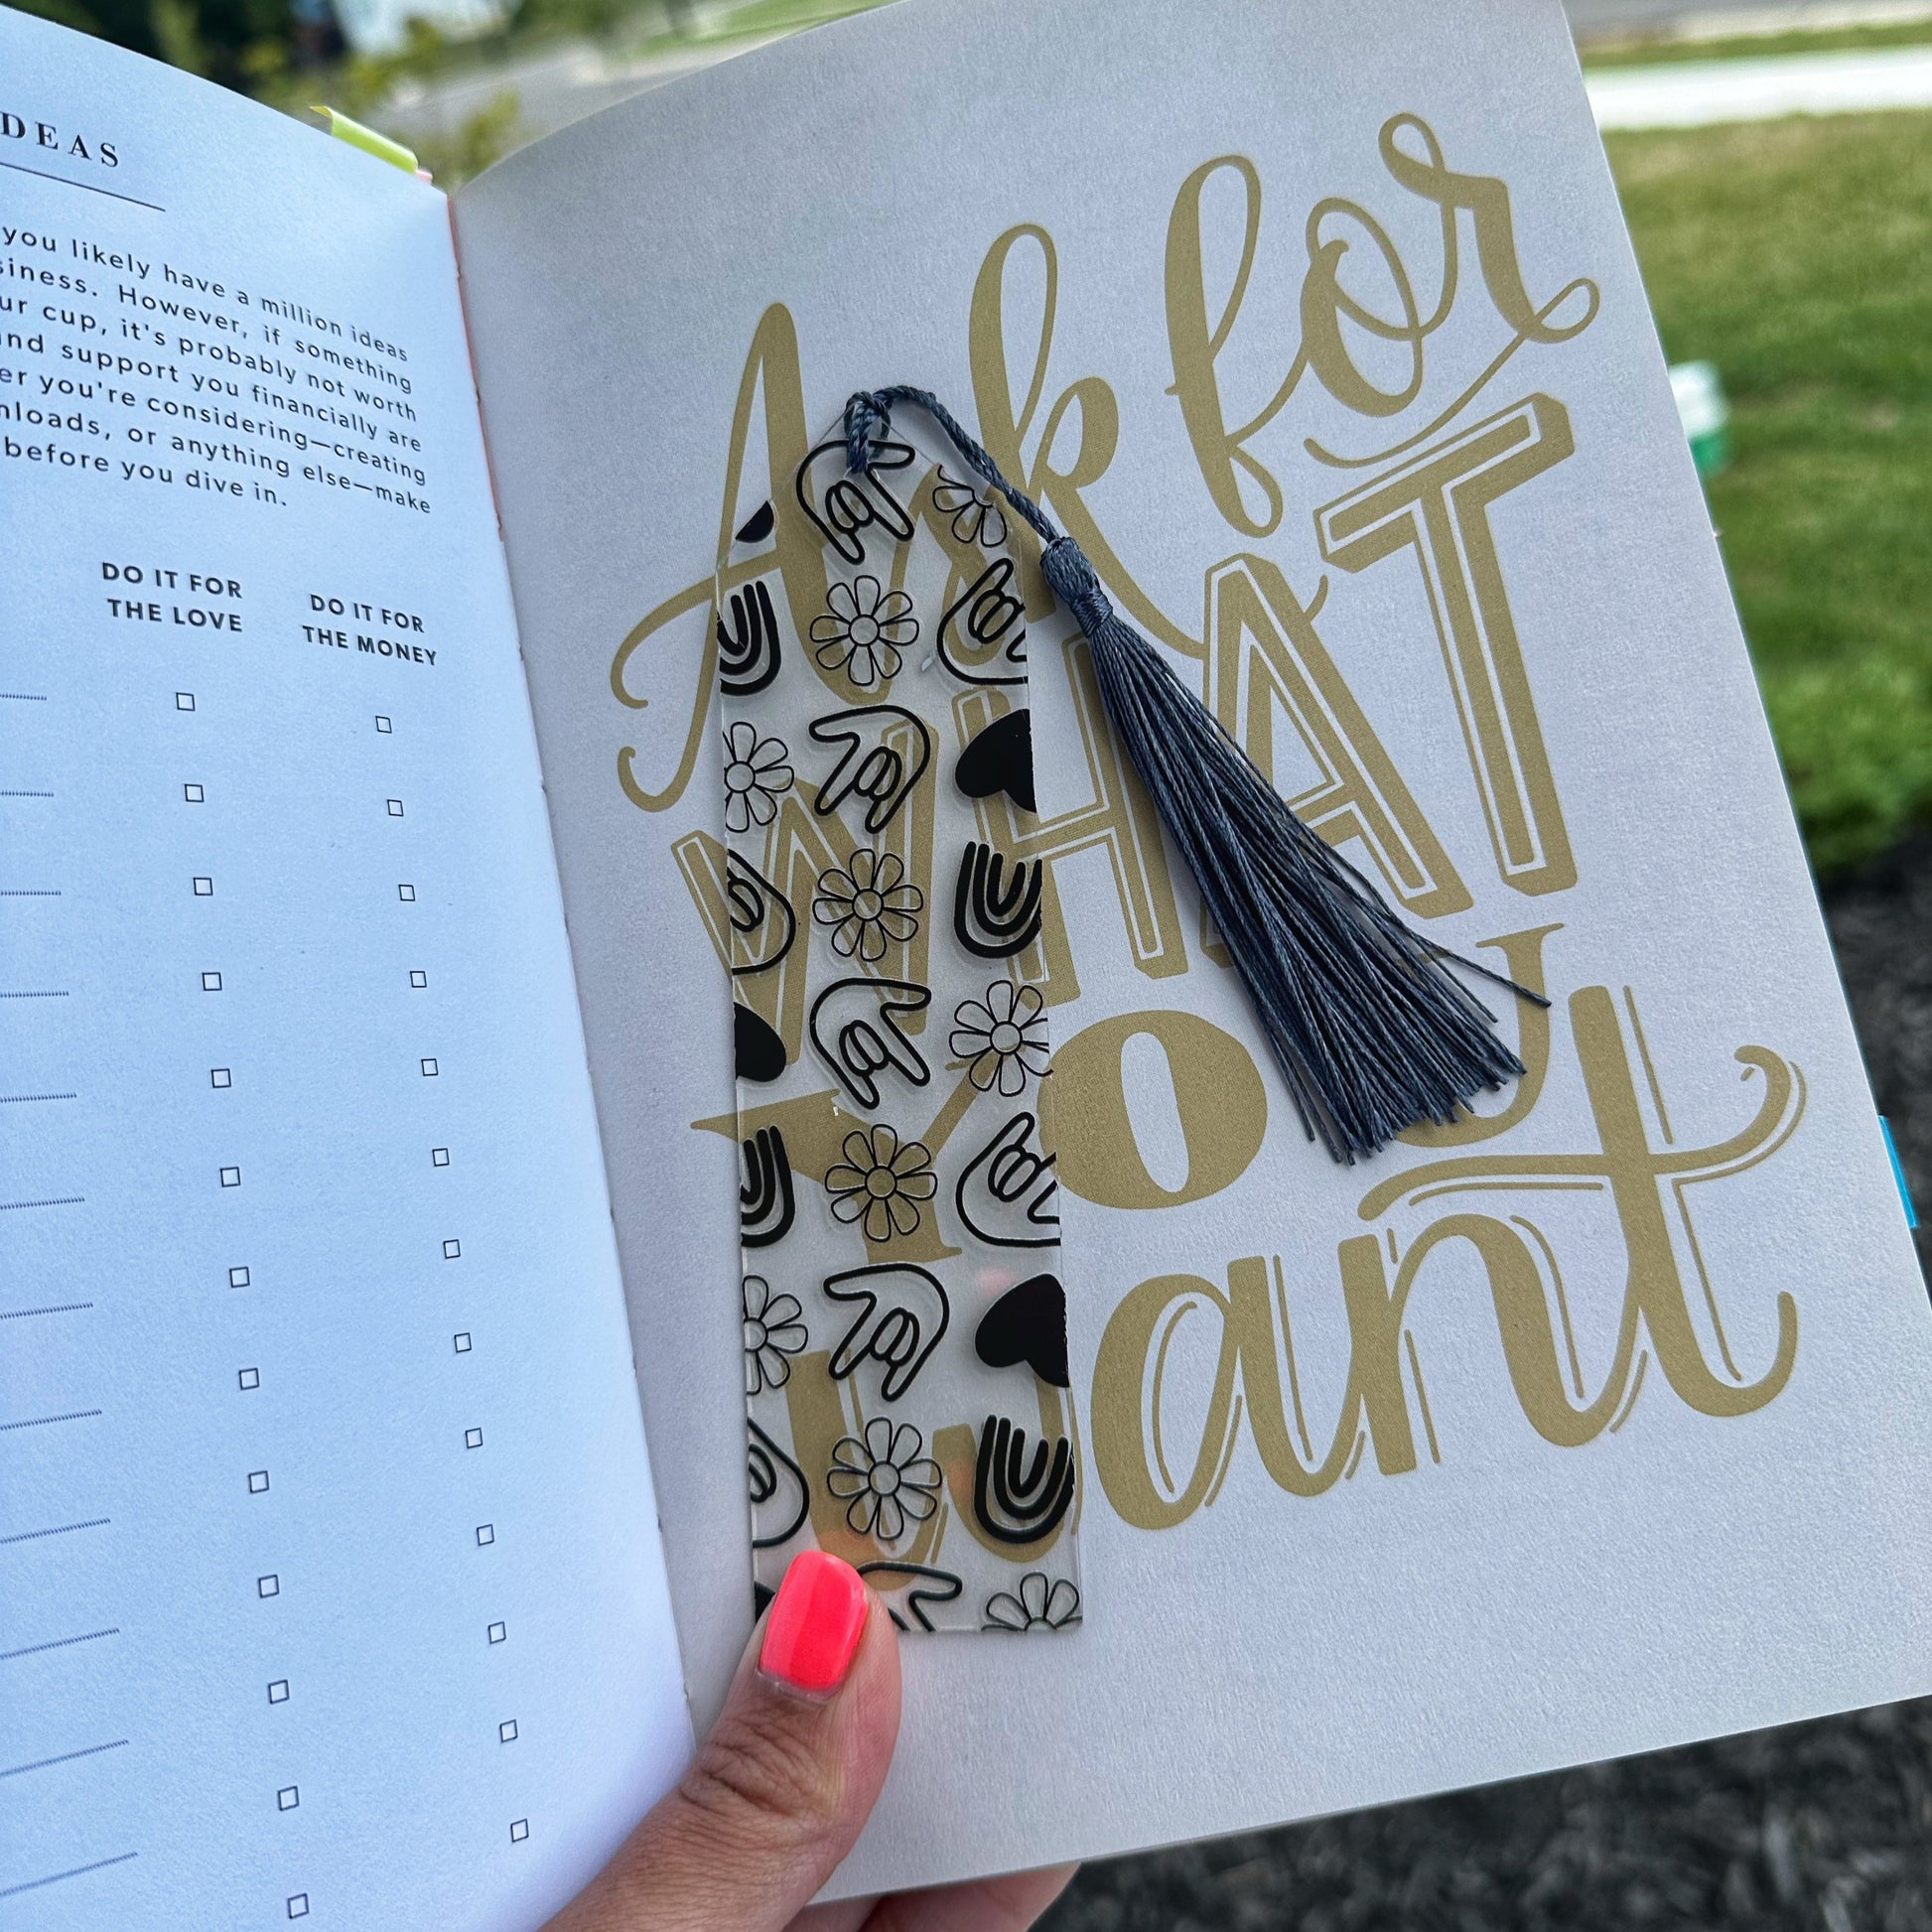 DEAS
you likely have a million ideas
siness. However, if something
ur cup, it's probably not worth
nd support you financially are
er you're considering—creating
nloads, or anything else—make
before you dive in.
DO IT FOR
THE LOVE
DO IT FOR
THE MONEY
Ask for
WHAT
YOU
want